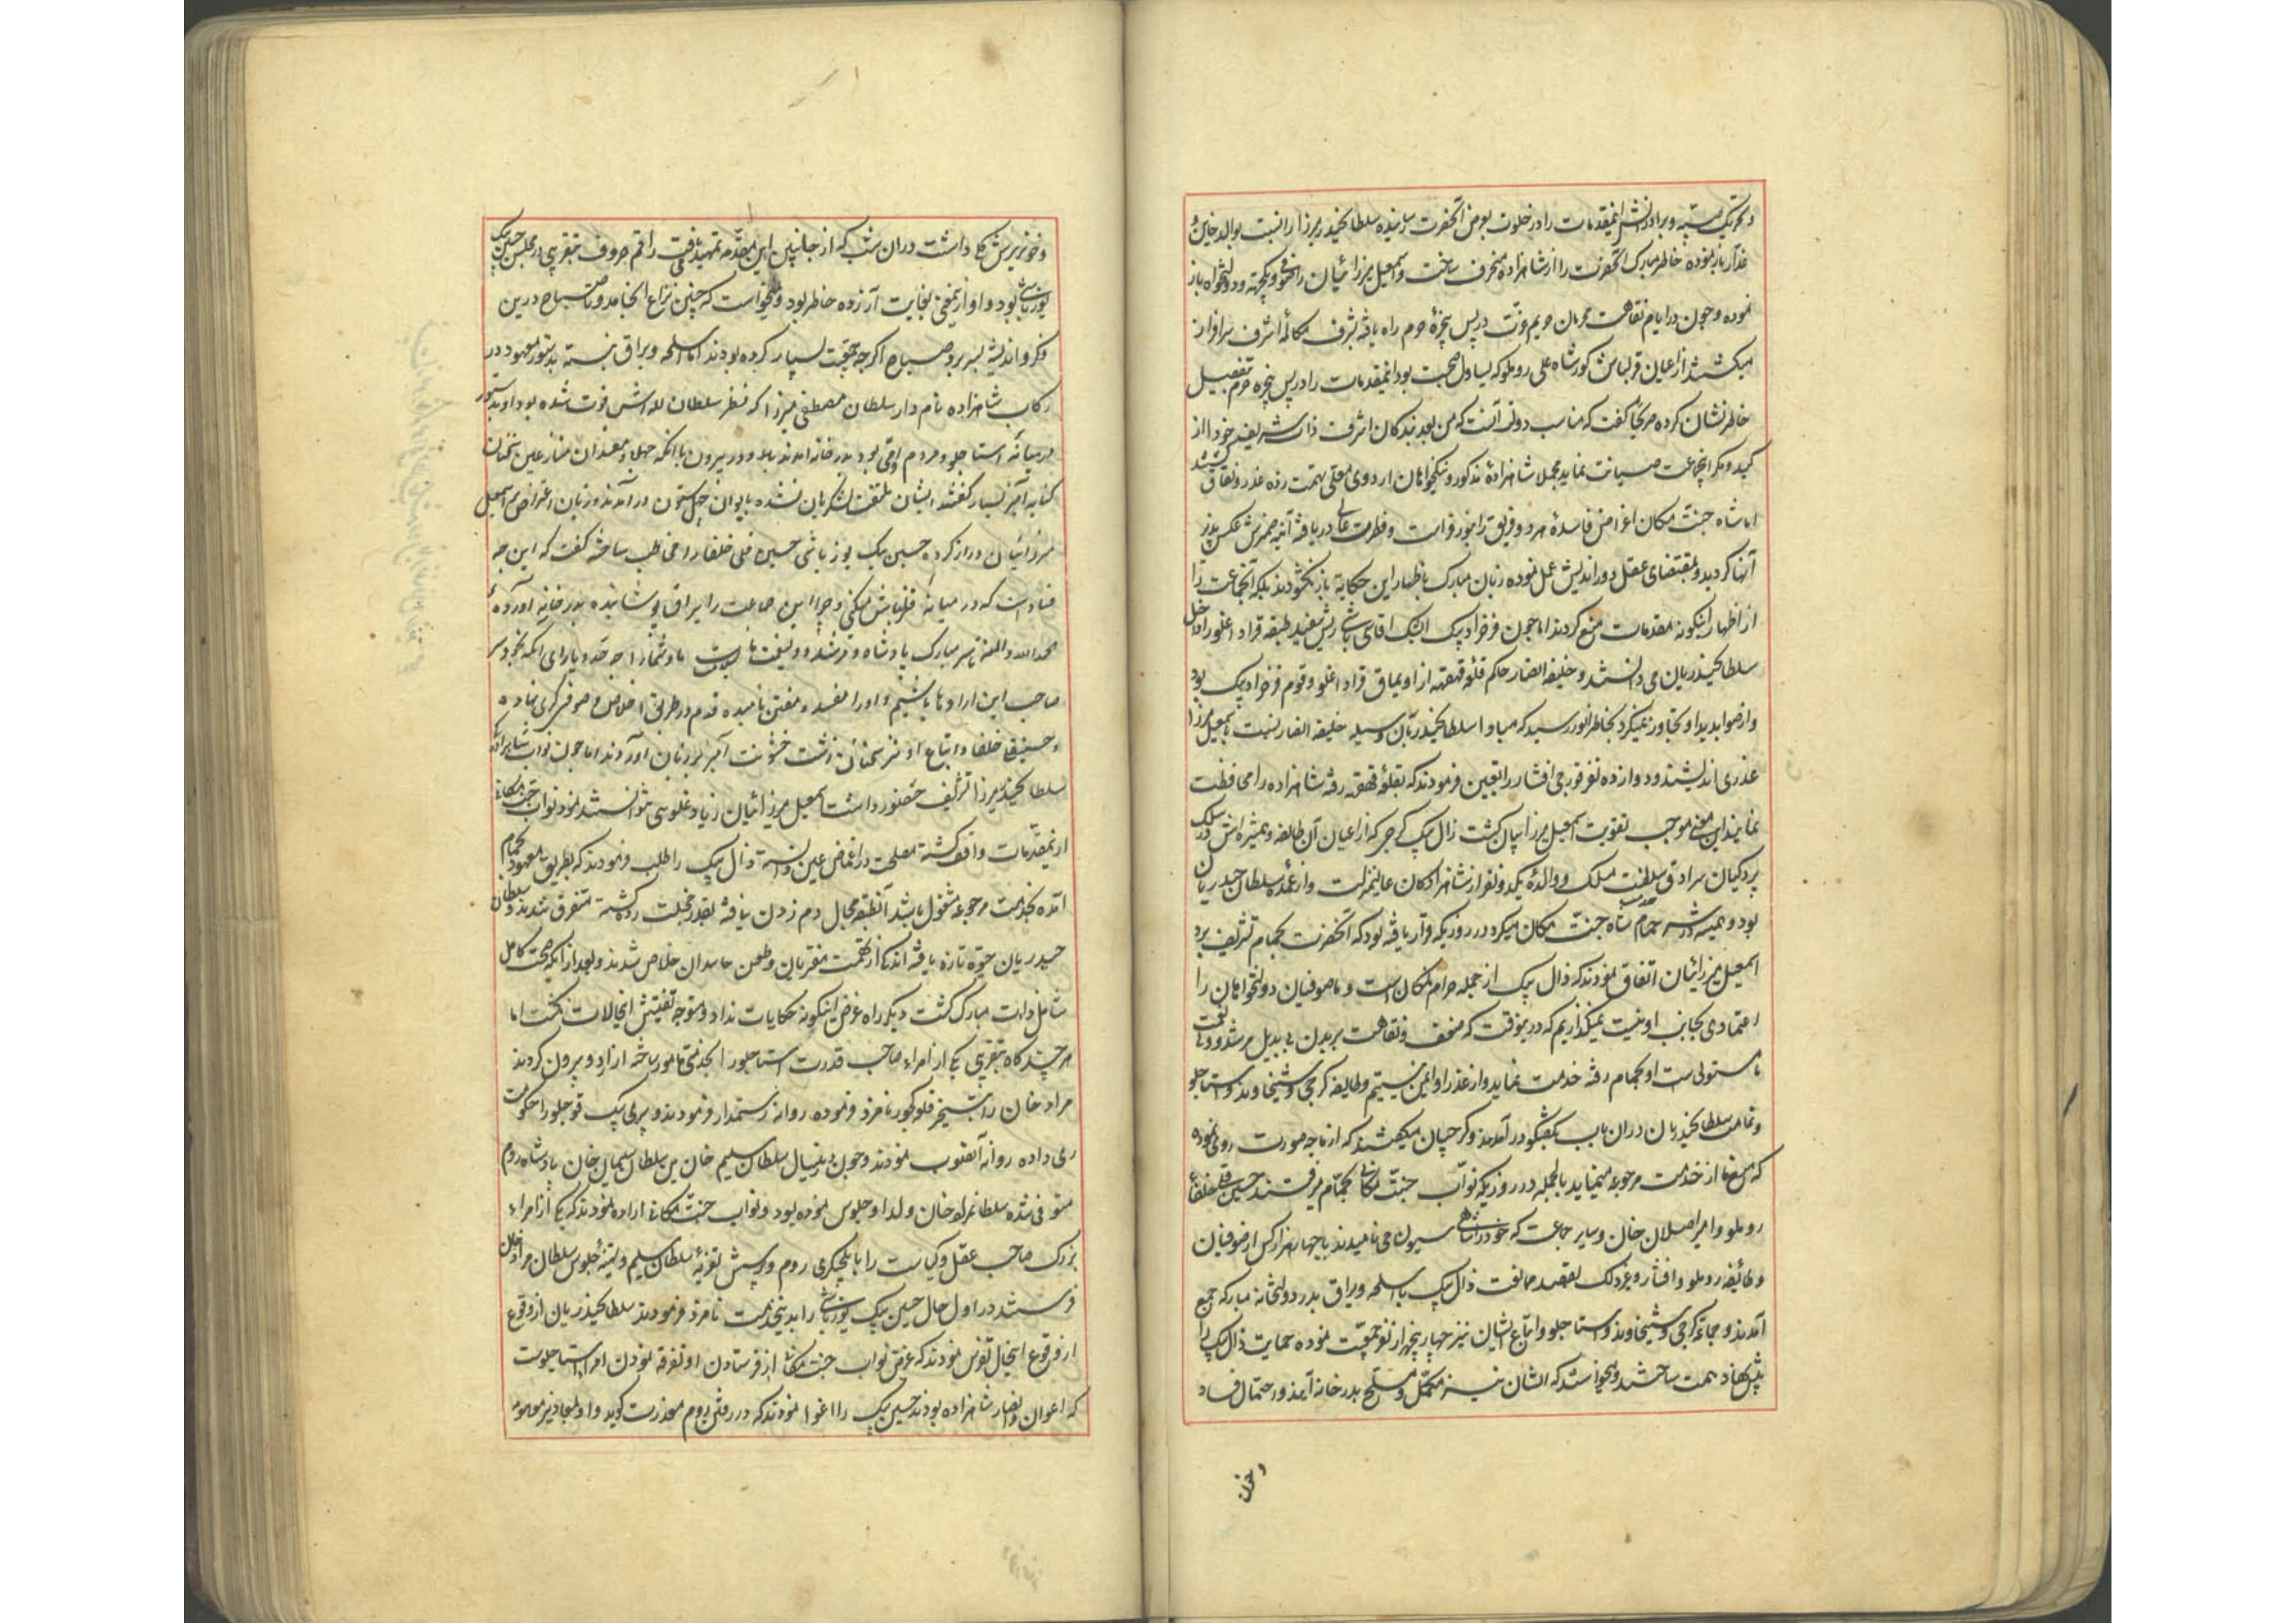 و تحریک نسبیه و برادرانش اینمقدمات را در خلوت بعرض آنحضرت رسانیده سلطان حیدر میرزا را نسبت بوالد خاین و
غدار باز نموده خاطر مبارک آنحضرت را از شاهزاده منحرف ساخت و اسمعیل میرزائیان را مخلص و یکجهة و دولتخواه باز
نموده و چون در ایام نقاهت محرمان حریم عزت در پس پنجرهٔ حرم راه یافته بشرف مکالمهٔ اشرف سرافراز
میکشتند از اعیان قزلباش کور شاه علی روملو که یساول صحبت بود اینمقدمات را در پس پنجره حرم بتفصیل
خاطرنشان کرده صریحا گفت که مناسب دولت آنست که من بعد بندکان اشرف ذات شریف خود را از
کید و مکر اینجماعت صیانت نماید مجملا شاهزادهٔ مذکور و نیکخواهان اردوی معلی بتهمت زده غدر و نفاق گشتند
اما شاه جنت مکان اغراض فاسدهٔ هر دو فریق را بنور فراست و فطرت عالی دریافته آینه ضمیرش عکس پذیر
آنها گردید و بمقتضای عقل دوراندیش عمل نموده زبان مبارک باظهار این حکایة باز نکشودند بلکه آنجماعت را
از اظهار اینکونه مقدمات منع کردند اما چون فرخزاد بیک ایشک اقاسی باشی ریش سفید طبقه قراداغلو را داخل
سلطان حیدریان می دانستند و خلیفه انصار حاکم قلعه قهقهه از اویماق قراداغلو و قوم فرخزاد بیک بود
و از صوابدید او تجاوز نمیکرد بخاطر انور رسید که مبادا سلطان حیدریان بوسیله خلیفه انصار نسبت باسمعیل میرزا
غدری اندیشند و دوازده نفر قورچی افشار را تعیین فرمودند که بقلعهٔ قهقهه رفته شاهزاده را محافظت
نمایند این معنی موجب تقویت اسمعیل میرزائیان کشت زال بیک کرجی که از اعیان آن طایفه و همشیره اش در سلک
پردکیان سرادق سلطنت منسلک و والدهٔ یک دو نفر از شاهزادکان عالیمنزلت و از عمده سلطان حیدریان
بود و همیشه در سر حمام خدمت شاه جنت مکان میکرد در روزیکه قرار یافته بود که آنحضرت بحمام تشریف برد
اسمعیل میرزائیان اتفاق نمودند که زال بیک از جمله حرام نمکان است و ما صوفیان دولتخواهان را
اعتمادی بجانب او نیست نمیگذاریم که در اینوقت که ضعف و نقاهت بر بدن بی بدیل مرشد و ولی نعمت
ما مستولی است او بحمام رفته خدمت نماید و از غدر او ایمن نیستیم و طایفه کرجی و شیخاوند و استاجلو
و تمامی سلطان حیدریان در آن باب بگفتگو در آمدند و کرجیان میکفتند که از ما چه صورت روی نموده
که منع ما از خدمت مرجوعه مینماید بالجمله در روزیکه نواب جنت مکانی بحمام میرفتند حسین قلی خلفاء
روملو و امیر اصلان خان و سایر جماعت که خود را شاهی سیون نامیدند با چهار هزار کس از صوفیان
و طایفه روملو و افشار و غیر ذلک بقصد ممانعت زال بیک با سلحه و یراق بدر دولتخانه مبارکه جمع
آمدند و جماعه کرجی و شیخاوند و استاجلو و اتباع ایشان نیز چهار پنجهزار نفر جمعیت نموده حمایت زال بیک را
پیش نهاد همت ساختند و میخواستند که ایشان نیز مکمل و مسلح بدرخانه آیند و احتمال فساد
و خون
و خونریزیش کلی داشت در آن شب که از جانبین این مقدمه تمهید یافت راقم حروف بتقریبی در مجلس حسین بیک
یوزباشی بود و او از اینمعنی بغایت آزرده خاطر بود و نمیخواست که چنین نزاع انجامد و تا صباح درین
فکر و اندیشه بسر برد صباح اگرچه جمعیت بسیار کرده بودند اما اسلحه و یراق نبسته بدستور معهود در
رکاب شاهزاده نامدار سلطان مصطفی میرزا که فنظر سلطان لله اش فوت شده بود او بدستور
در میانه استاجلو و مردم واقی بود بدرخانه آمدند با آنکه جهلا و مفسدان منازعین سخنان
کنایه آمیز بسیار گفتند ایشان ملتفت لشکریان نشده بایوان چهل ستون در آمدند و زبان اعتراض باسمعیل
میرزائیان دراز کرده حسین بیک یوزباشی حسین قلی خلفا را مخاطب ساخته گفت که این چه
فساد است که در میانهٔ قزلباش میکنی و چرا این جماعت را یراق پوشانیده بدرخانه آوردهٔ
الحمد لله و المنة تا سر مبارک پادشاه و مرشد و ولی نعمت ما بسلامت است ما و شما را چه حد و یارای آنکه بخود سر
صاحب این اراده ها باشیم و او را مفسد و مفتن نامیده قدم در طریق اخلاص و صوفی گری نهاده
و حسینقلی خلفا و اتباع او نیز سخنان زشت خشونت آمیز بر زبان آوردند اما چون نواب شاهزاده
سلطان حیدر میرزا تشریف حضور داشت اسمعیل میرزائیان زیاد غلوی نتوانستند نمود نواب جنت مکانی
از اینمقدمات واقف کشته مصلحت در اغماض عین دانسته زال بیک را طلب فرمودند که بطریق معهود بحمام
آمده بخدمت مرجوعه مشغول باشد آنطبقه مجال دم زدن نیافته بغدر خجلت زده کشته متفرق شدند و سلطان
حیدریان حیوة تازه یافته اندک از تهمت مقربان و طعن حاسدان خلاص شدند و بعد از آنکه صحت کامل
شامل ذات مبارک کشت دیگر راه عرض اینکونه حکایات نداد و متوجه تفتیش اینحالات نکشت اما
هر چند گاه بتقریبی یکی از امراء صاحب قدرت استاجلو را بخدمتی مامور ساخته از اردو بیرون کردند
مراد خان را بتسخیر قلعه کجور نامزد فرموده روانه رستمدار فرمودند و پیری بیک قوجلو را حکومت
ری داده روانه آنصوب نمودند و چون درین سال سلطان سلیم خان بن سلطان سلیمان خان پادشاه روم
متوفی شده سلطان مراد خان ولد او جلوس نموده بود و نواب جنت مکانی اراده نمودند که یکی از امراء
بزرک صاحب عقل و کیاست را بایلچیکری روم و پرسش تعزیهٔ سلطان سلیم و تهنیهٔ جلوس سلطان مراد خان
فرستند در اول حال حسین بیک یوزباشی را بدینخدمت نامزد فرمودند سلطان حیدریان از وقوع
از وقوع اینحال تفرس نمودند که غرض نواب جنت مکانی از فرستادن او تفرقه نمودن امراء استاجلوست
که اعوان و انصار شاهزاده بودند حسین بیک را اغوا نمودند که در رفتن روم معذرت گوید و او بمعاذیر موهومه